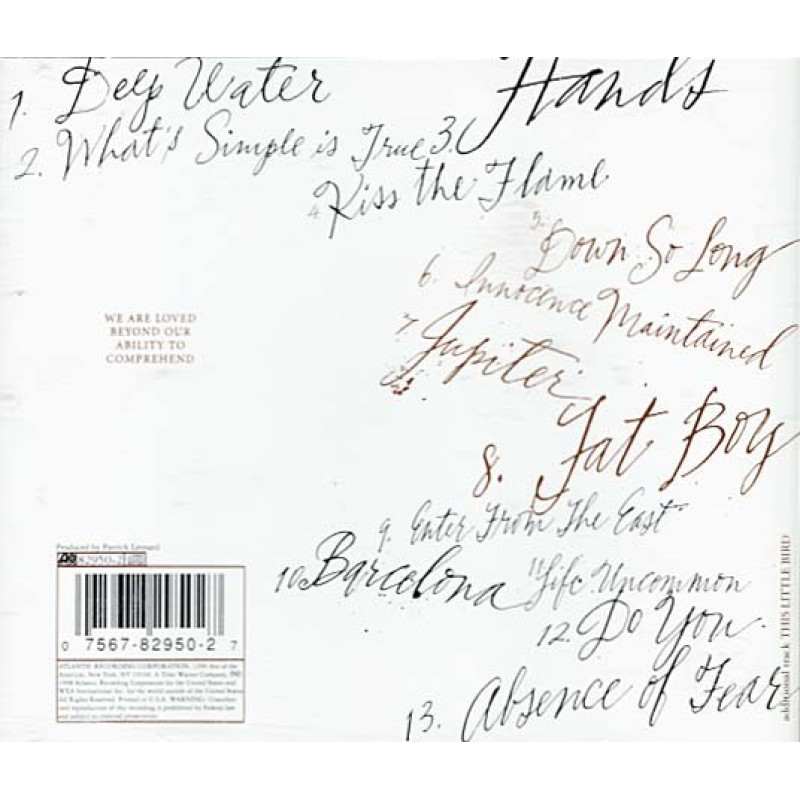 1. Deep Water
2. What's Simple is True 3. Hands
4. Kiss the Flame
5. Down So Long
6. Innocence Maintained
7. Jupiter
8. Fat Boy
9. Enter From The East
10. Barcelona 11. Life Uncommon
12. Do You
13. Absence of Fear
WE ARE LOVED
BEYOND OUR
ABILITY TO
COMPREHEND
Produced by Patrick Leonard
82950-2
0 7567-82950-2 7
ATLANTIC RECORDING CORPORATION, 1290 Ave of the
Americas, New York, NY 10104. A Time Warner Company.
1998 Atlantic Recording Corporation for the United States and
WEA International Inc. for the world outside of the United States.
All Rights Reserved. Printed in U.S.A. WARNING: Unauthorized
reproduction of this recording is prohibited by Federal law
and subject to criminal prosecution.
additional track THIS LITTLE BIRD